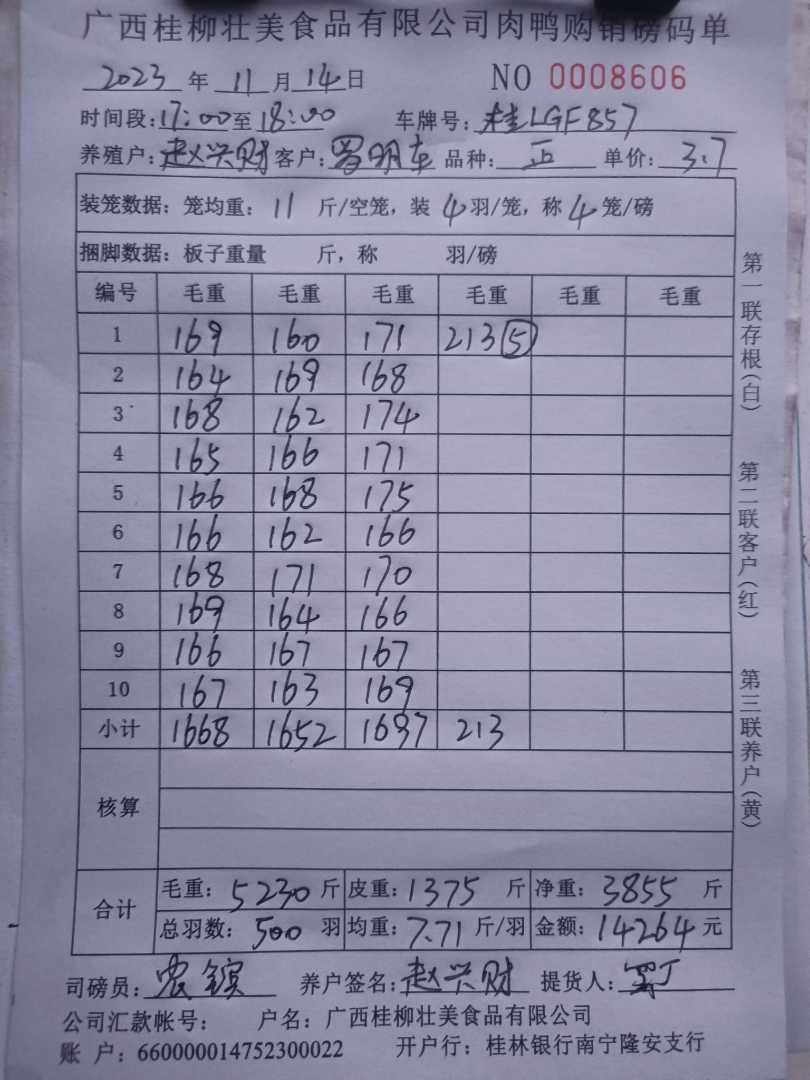 广西桂柳壮美食品有限公司肉鸭购销磅码单
2023 年 11 月 14 日 NO 0008606
时间段:17:00至18:00 车牌号:桂LGF857
养殖户:赵兴财 客户:罗明车 品种:正 单价:3.7
装笼数据:笼均重:11 斤/空笼,装 4 羽/笼,称 4 笼/磅
捆脚数据:板子重量 斤,称 羽/磅
编号 毛重 毛重 毛重 毛重 毛重 毛重
1 169 160 171 213⑤
2 164 169 168
3 168 162 174
4 165 166 171
5 166 168 175
6 166 162 166
7 168 171 170
8 169 164 166
9 166 167 167
10 167 163 169
小计 1668 1652 1697 213
核算
合计 毛重:5230 斤 皮重:1375 斤 净重:3855 斤
总羽数:500 羽 均重:7.71 斤/羽 金额:14264 元
司磅员: 养户签名:赵兴财 提货人:
公司汇款帐号: 户名:广西桂柳壮美食品有限公司
账 户:660000014752300022 开户行:桂林银行南宁隆安支行
第一联存根(白)
第二联客户(红)
第三联养户(黄)